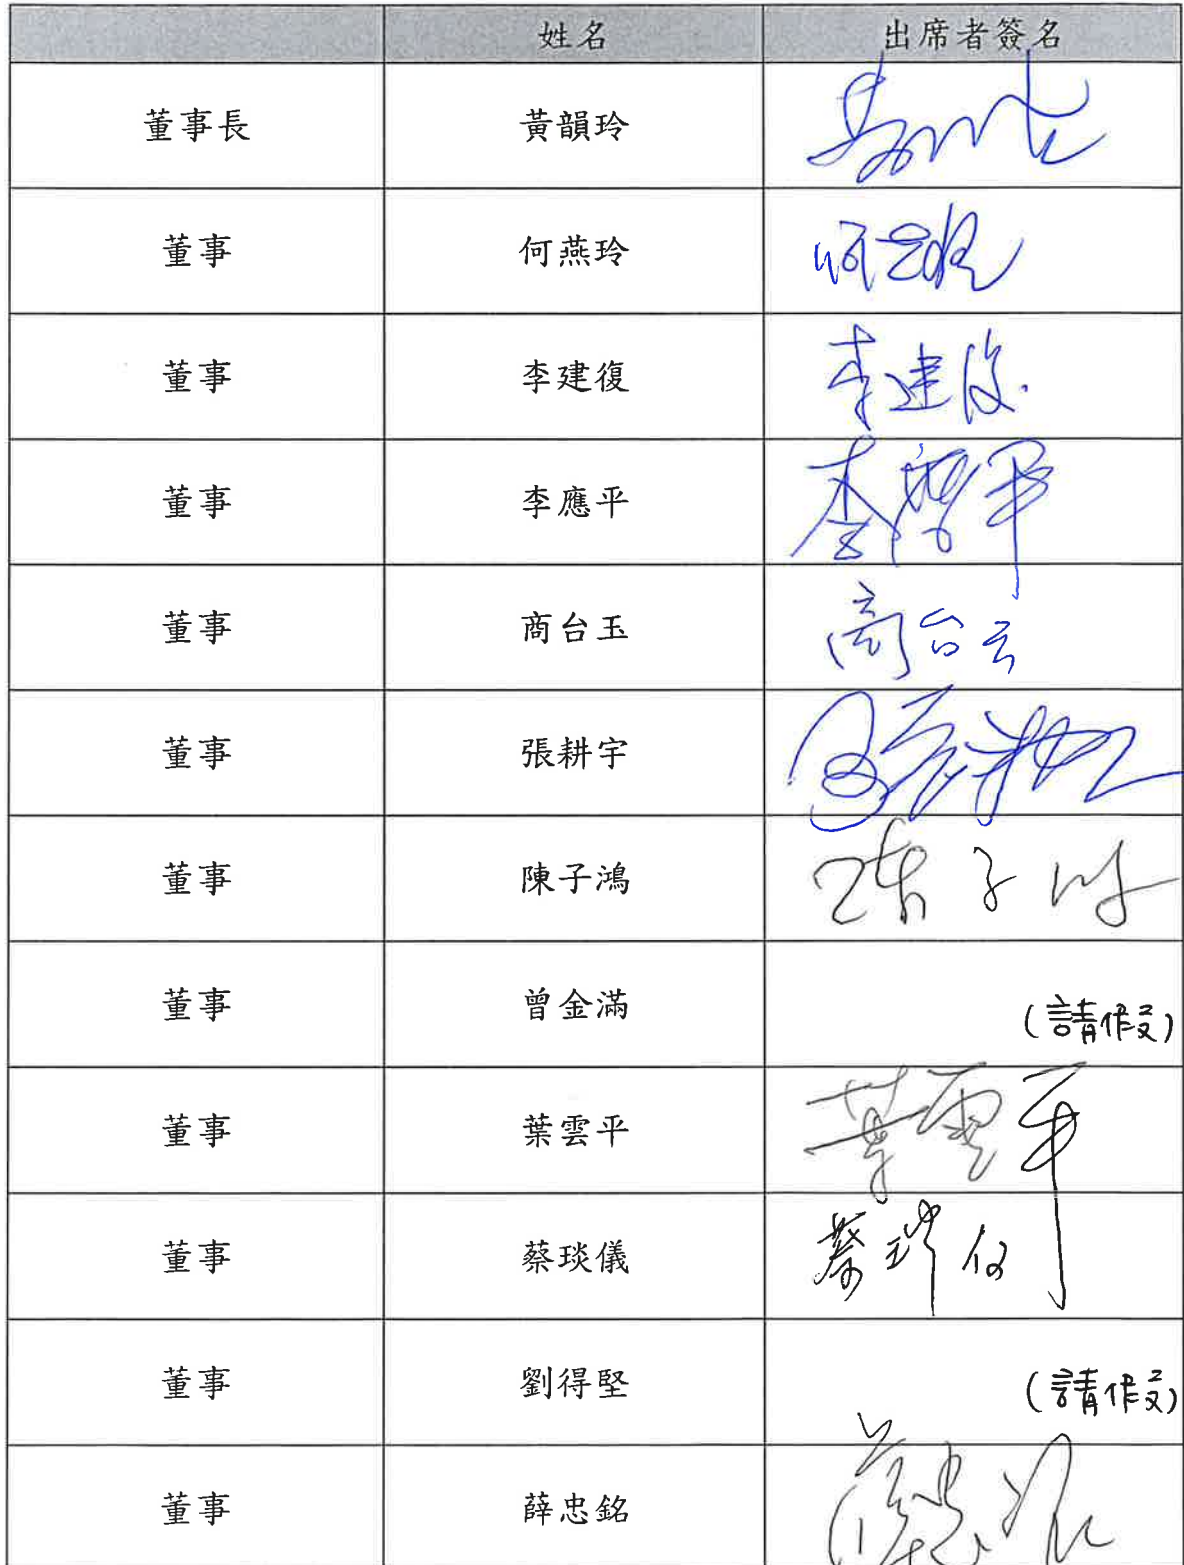 姓名 出席者簽名
董事長 黃韻玲
董事 何燕玲
董事 李建復 李建復
董事 李應平 李應平
董事 商台玉 商台玉
董事 張耕宇
董事 陳子鴻 陳子鴻
董事 曾金滿 (請假)
董事 葉雲平 葉雲平
董事 蔡琰儀
董事 劉得堅 (請假)
董事 薛忠銘